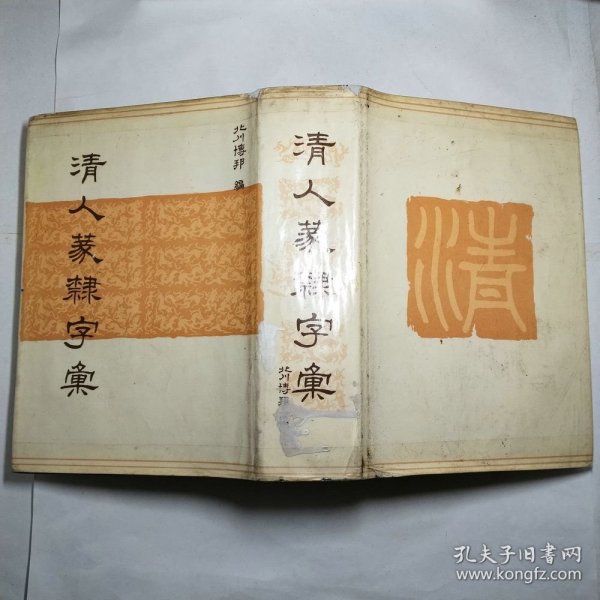 清人篆隸字彙
北川博邦 編
清人篆隸字彙
北川博邦
清
孔夫子旧书网
www.kongfz.com